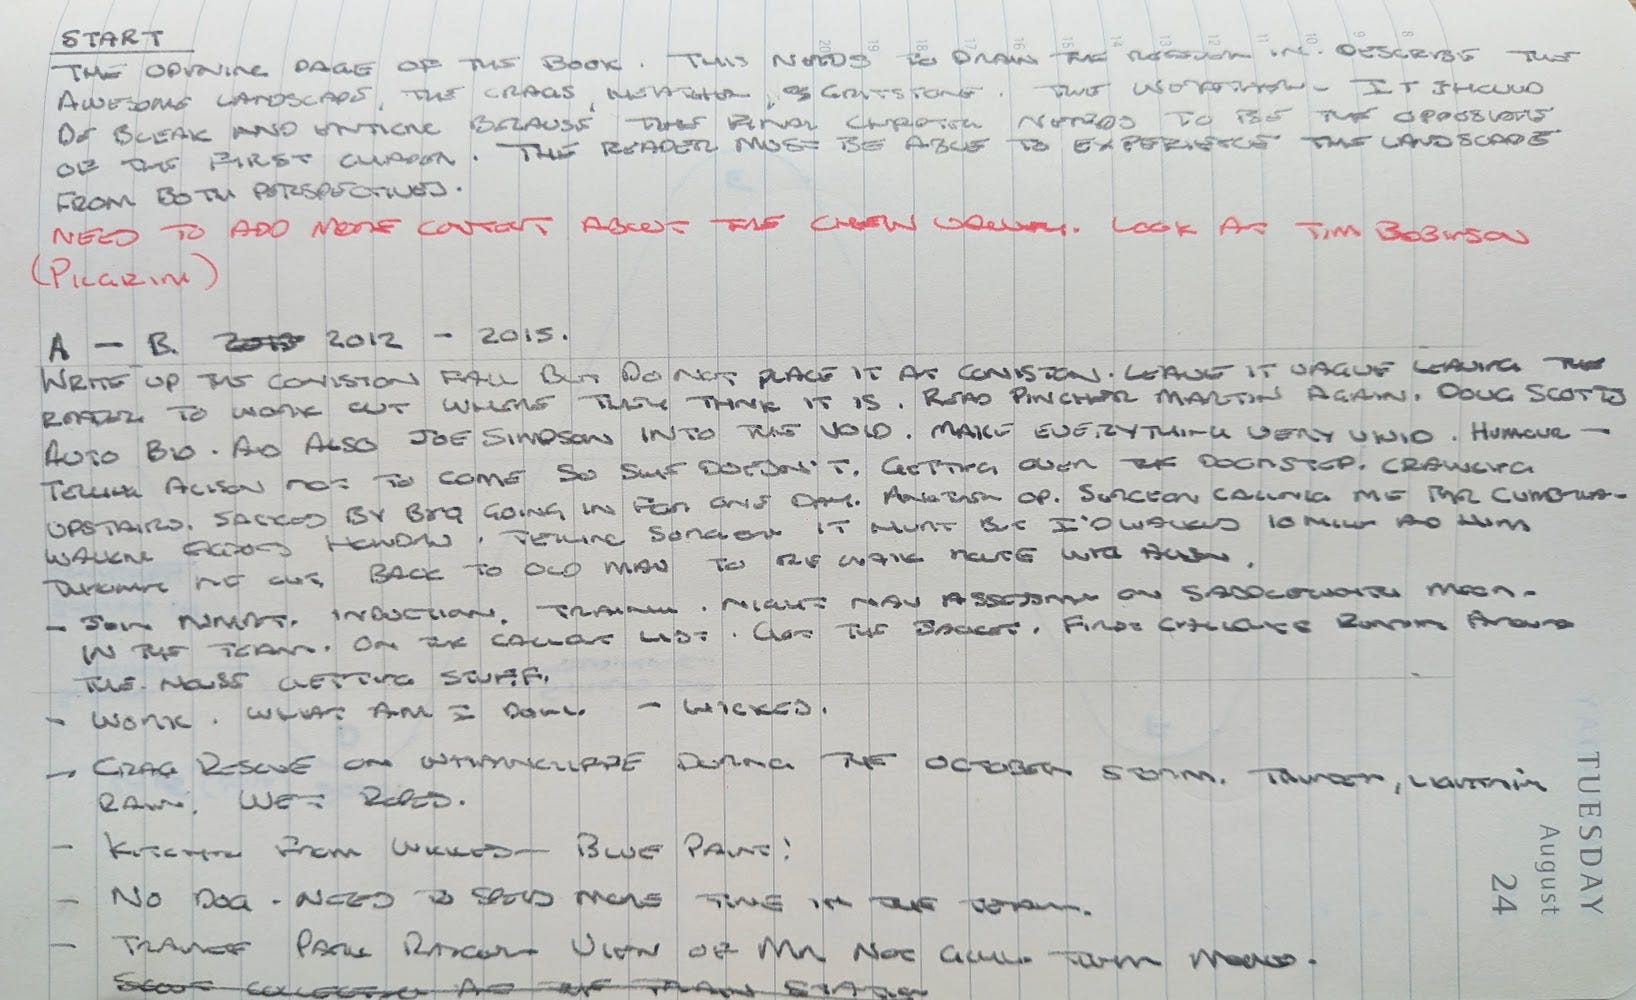 START
THE OPENING PAGE OF THE BOOK. THIS NEEDS TO DRAW THE READER IN. DESCRIBE THE
AWESOME LANDSCAPE, THE CRAGS, HEATHER, GRITSTONE. THE WEATHER. IT SHOULD
BE BLEAK AND BECAUSE THE FINAL CHAPTER NEEDS TO BE THE OPPOSITE
OF THE FIRST CHAPTER. THE READER MUST BE ABLE TO EXPERIENCE THE LANDSCAPE
FROM BOTH PERSPECTIVES.
NEED TO ADD MORE CONTENT ABOUT THE CHEW VALLEY. LOOK AT TIM ROBINSON
(PILGRIM)
A - B. 2012 - 2015.
WRITE UP THE CONISTON FALL BUT DO NOT PLACE IT AT CONISTON. LEAVE IT VAGUE LEAVING THE
READER TO WORK OUT WHERE THEY THINK IT IS. READ PINCHER MARTIN AGAIN. DOUG SCOTTS
AUTO BIO. AND ALSO JOE SIMPSON INTO THE VOID. MAKE EVERYTHING VERY VIVID. HUMOUR -
TELLING ALISON NOT TO COME SO SHE DOESN'T. GETTING OVER THE DOORSTEP. CRAWLING
UPSTAIRS. SACKED BY B&Q GOING IN FOR ONE DAY. ANOTHER OP. SURGEON CALLING ME MR CUMBRIA -
WALKING ACROSS . TELLING SURGEON IT HURT BUT I'D WALKED 10 MILES AND HIM
ME OUT. BACK TO OLD MAN TO RE WALK ROUTE WITH ALISON.
- JOIN . INDUCTION. TRAINING. NIGHT NAV ASSESSMENT ON SADDLEWORTH MOOR -
IN THE TEAM. ON THE CALLOUT LIST. GOT THE JACKET. FIRST CALLOUT RUNNING AROUND
THE HOUSE GETTING STUFF.
- WORK. WHAT AM I DOING - WICKED.
- CRAG RESCUE ON WHARNCLIFFE DURING THE OCTOBER STORM. THUNDER, LIGHTNING
RAIN. WET ROPES.
- KITCHEN FROM WICKED - BLUE PAINT!
- NO DOG. NEED TO SPEND MORE TIME IN THE TEAM.
- PARK VIEW OF MR NOT TEAM .
SCOUT COLLECTED AT THE TRAIN STATION
TUESDAY
August
24
8
9
10
11
12
13
14
15
16
17
18
19
20